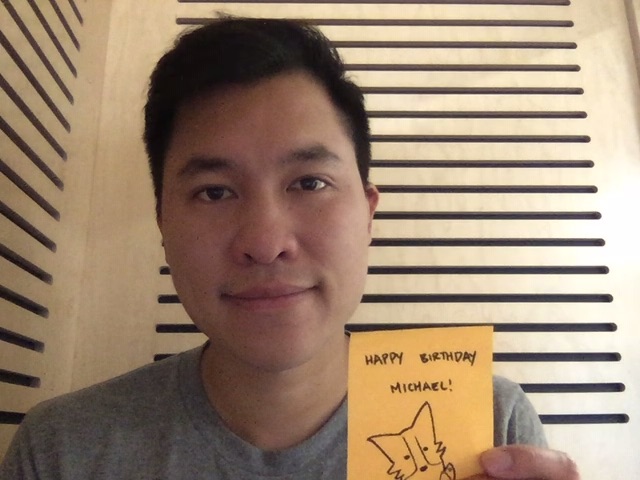 HAPPY BIRTHDAY
MICHAEL!